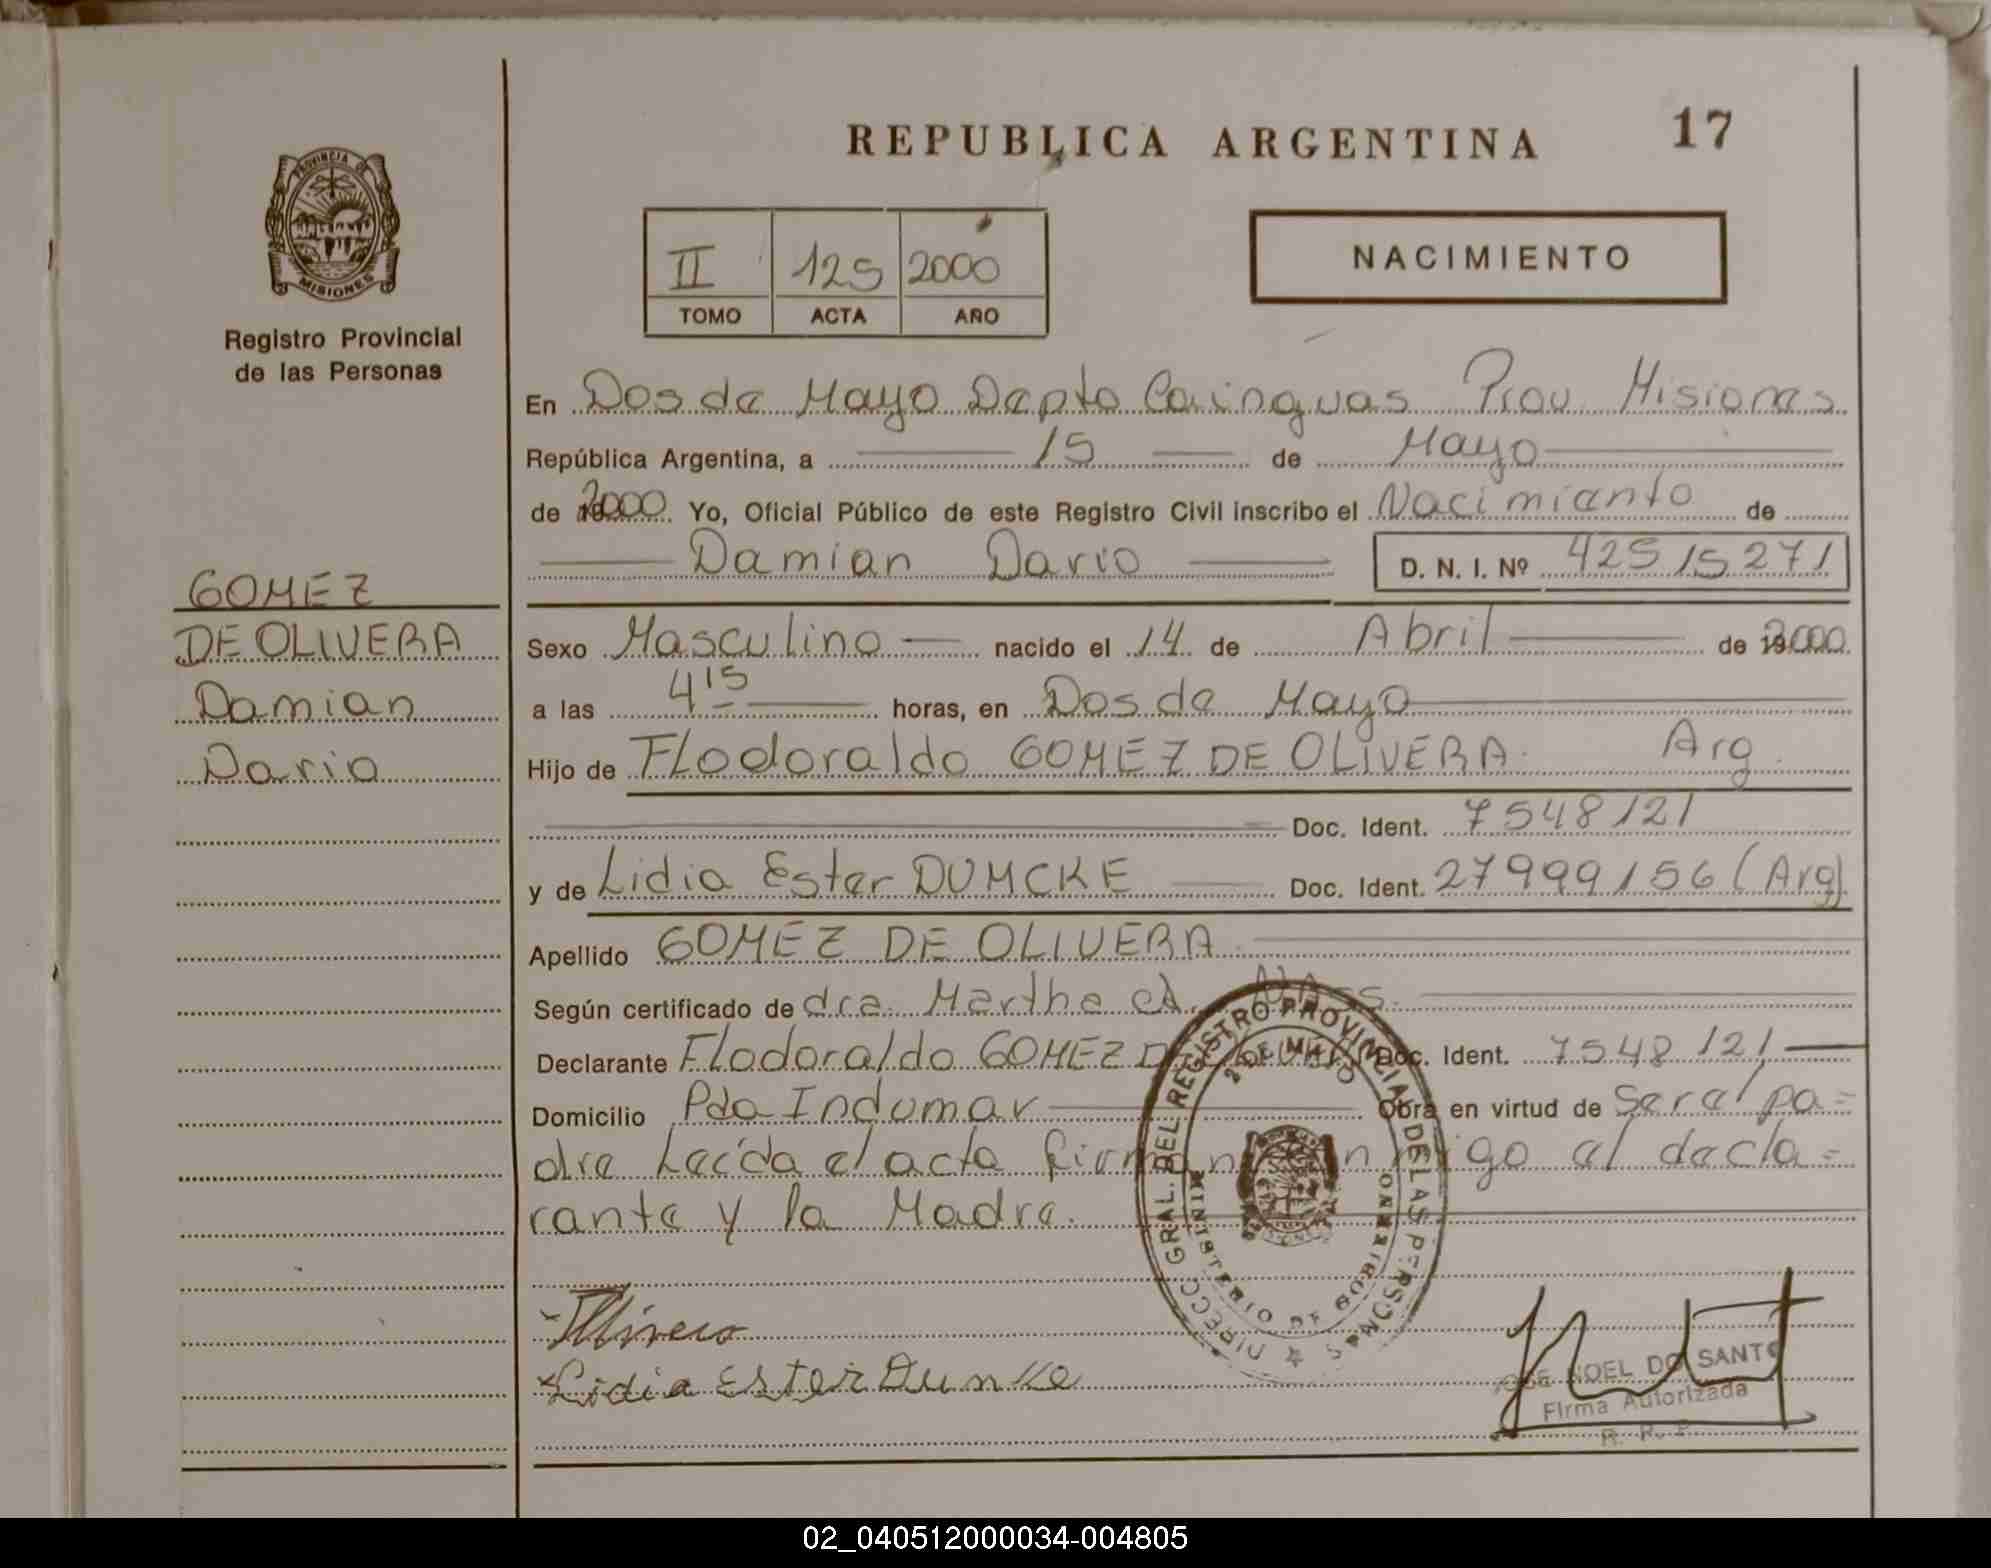 REPUBLICA ARGENTINA
17
PROVINCIA DE MISIONES
Registro Provincial
de las Personas
II 125 2000
TOMO ACTA AÑO
NACIMIENTO
En Dos de Mayo Depto Cainguas Prov. Misiones
República Argentina, a 15 de Mayo
de 2000 Yo, Oficial Público de este Registro Civil inscribo el Nacimiento de
Damian Dario D. N. I. Nº 42515271
GOMEZ
DE OLIVERA
Damian
Dario
Sexo Masculino nacido el 14 de Abril de 2000
a las 4 15 horas, en Dos de Mayo
Hijo de Flodoraldo GOMEZ DE OLIVERA. Arg.
Doc. Ident. 7548121
y de Lidia Ester DUMCKE Doc. Ident. 27999156 (Arg)
Apellido GOMEZ DE OLIVERA.
Según certificado de dra. Martha
Declarante Flodoraldo GOMEZ Doc. Ident. 7548121
Domicilio Pda Indumar Obra en virtud de ser el pa=
dre Leída el acta firman conmigo el decla=
rante y la Madre.
DIRECC. GRAL. DEL REGISTRO PROVINCIAL DE LAS PERSONAS
2 DE MAYO
MINISTERIO DE GOBIERNO
Lidia Ester Dunke
JOSE NOEL DO SANTO
Firma Autorizada
R. P. P.
02_040512000034-004805